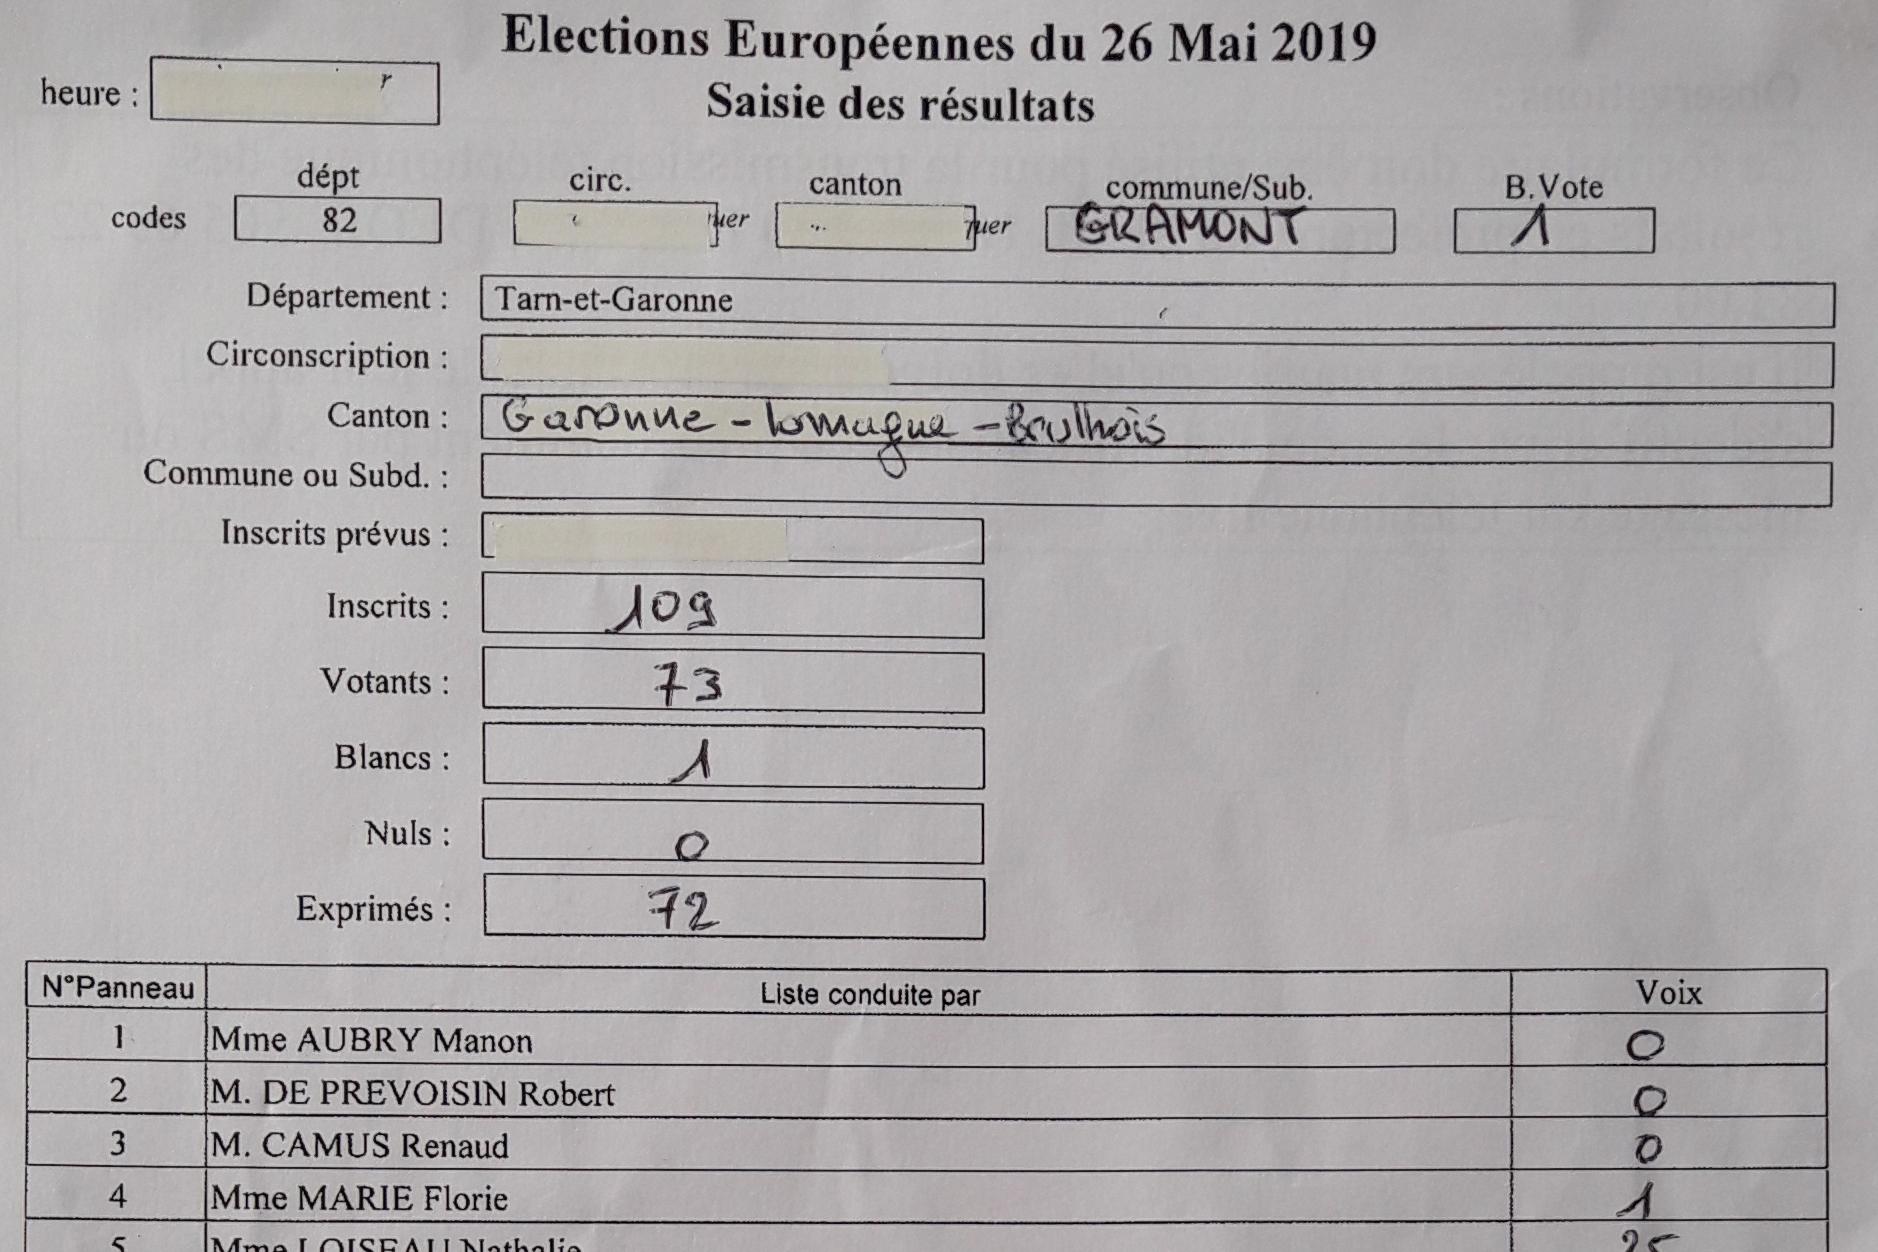 Elections Européennes du 26 Mai 2019
heure :
Saisie des résultats
dépt circ. canton commune/Sub. B.Vote
codes 82 uer uer GRAMONT 1
Département : Tarn-et-Garonne
Circonscription :
Canton : Garonne - Lomagne - Brulhois
Commune ou Subd. :
Inscrits prévus :
Inscrits : 109
Votants : 73
Blancs : 1
Nuls : 0
Exprimés : 72
N°Panneau Liste conduite par Voix
1 Mme AUBRY Manon 0
2 M. DE PREVOISIN Robert 0
3 M. CAMUS Renaud 0
4 Mme MARIE Florie 1
5 Mme LOISEAU Nathalie 25